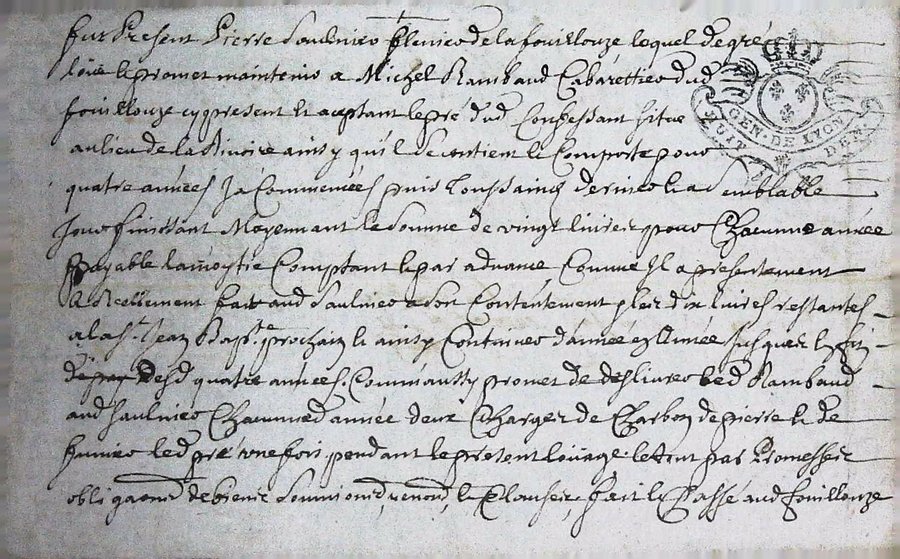 fut Present Pierre Saulnier ... de la fouillouze lequel de gré
loüe et promet maintenir a Michel Rambaud Cabarettier dud
fouillouze cy present et aceptant le pré dud Confessant situé
au lieu de la Riuoire ainsy qu'il se contient et Comporte pour
quatre années Ja Commencées puis toussainctz dernier et a semblable
Jour finissant Moyennant la somme de vingt liures pour Chacunne année
payable la moytie Comptant et par aduance Comme Jl a presentement
et Reellement fait aud Saulnier a son Contentement et les dix liures restantes
a la st Jean Bapte prochain et ainsy Continuer d'année en année Jusques la fin
desd quatre années. Comme aussy promet de desliurer led Rambaud
aud Saulnier Chacunne année deux Charges de Charbon de pierre et de
fumer led pré une fois pendant le present louage le tout par Promesses
obligaõn de biens soumiõns renonõns et Clauses, fait et Passé aud fouillouze
GEN. DE LYON
HUIT DEN.